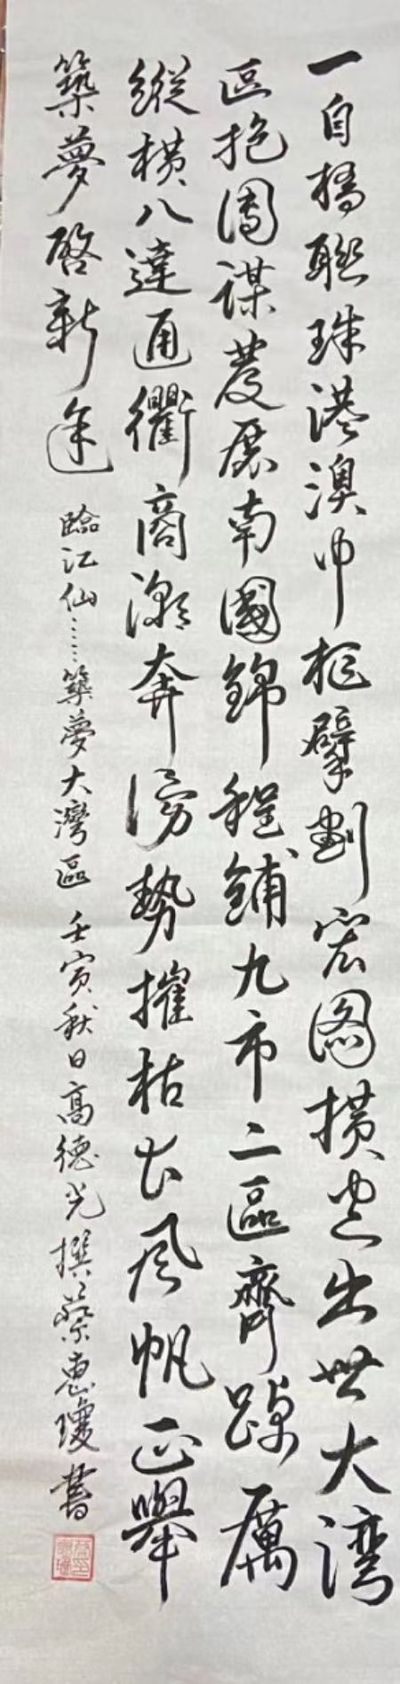 一自橋聯珠港澳中樞擘劃宏圖橫空出世大灣
區抱團謀發展南國錦程鋪九市二區齊踔厲
縱橫八達通衢商潮奔湧勢摧枯長風帆正舉
築夢啓新途
臨江仙……築夢大灣區 壬寅秋日高德光撰蔡惠瓊書